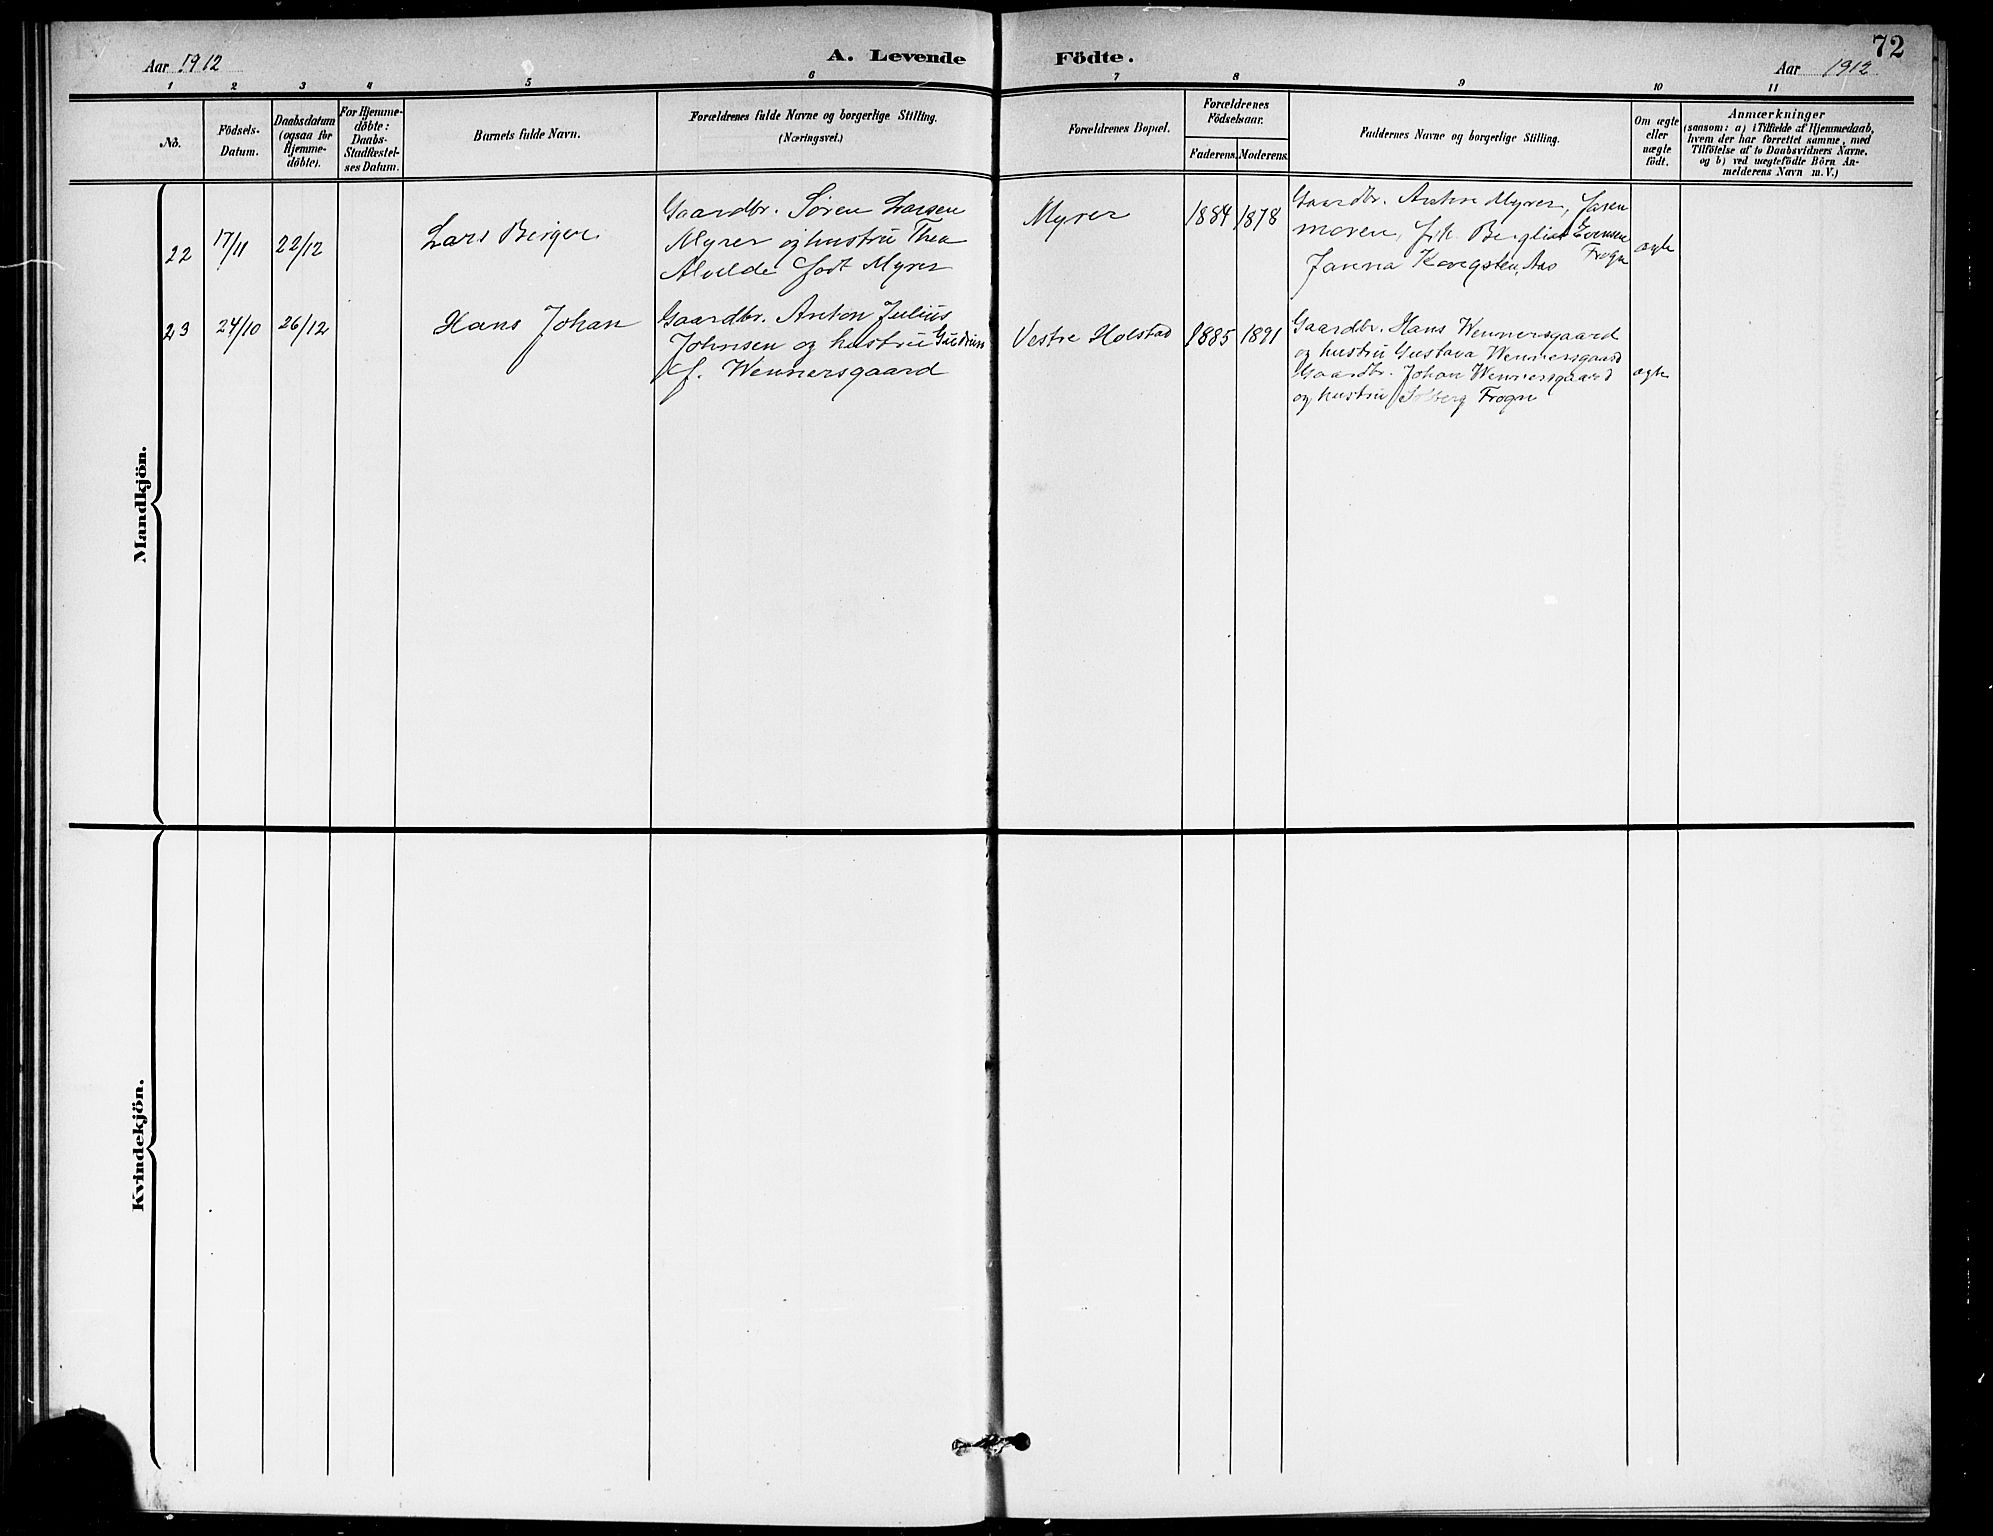 72
Aar 1912
A. Levende Födte.
Aar 1912
1 2 3 4 5 6 7 8 9 10 11
No.
Födsels-
Datum.
Daabsdatum
(ogsaa for
Hjemme-
döbte).
For Hjemme-
döbte:
Daabs-
Stadfæstel-
ses Datum.
Barnets fulde Navn.
Forældrenes fulde Navne og borgerlige Stilling.
(Næringsvei.)
Forældrenes Bopæl.
Forældrenes
Födselsaar.
Faderens. Moderens.
Faddernes Navne og borgerlige Stilling.
Om ægte
eller
uægte
födt.
Anmærkninger
(saasom: a) i Tilfælde af Hjemmedaab,
hvem der har forrettet samme, med
Tilföielse af to Daabsvidners Navne.
og b) ved uægtefödte Börn An-
melderens Navn m. V.)
Mandkjön.
22
17/11
22/12
Lars Birger
Gaardbr. Søren Larsen
Myrer og hustru Thea
født Myrer
Myrer
1884 1878
Gaardbr. Myrer, Faren
moren, frk. Evensen
Frogn
Aas
ægte
23
24/10
26/12
Hans Johan
Gaardbr. Anton Julius
Johnsen og hustru Gudrun
f. Wennersgaard
Vestre Holstad
1885 1891
Gaardbr. Hans Wennersgaard
og hustru Gustava Wennersgaard
Gaardbr. Johan Wennersgaard
og hustru Frogn
ægte
Kvindekjön.